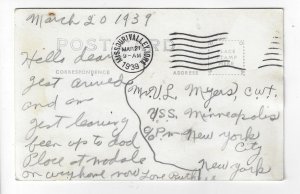 March 20 1939
POSTCARD
MISSOURI VALLEY, IOWA
MAR 21
8-AM
1939
PLACE
STAMP
HERE
CORRESPONDENCE
ADDRESS
Hello dear
gest arrived
and am
gest leaving
been up to dad
Place at modale
on way home now Love Ruth
Mr V.L. Myers, C.W.T.
U.S.S. Minneapolis
P.M. New York
City
New York